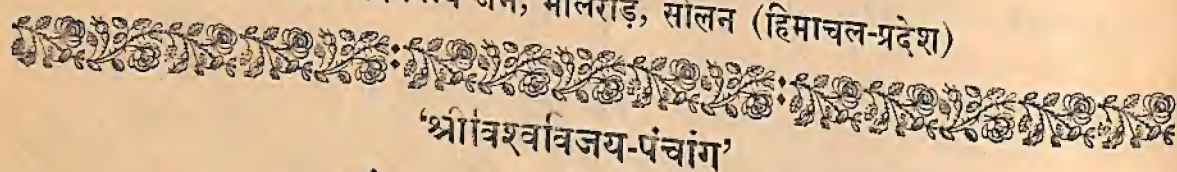 जैन, मालरोड़, सोलन (हिमाचल-प्रदेश)
‘श्रीविश्वविजय-पंचांग’